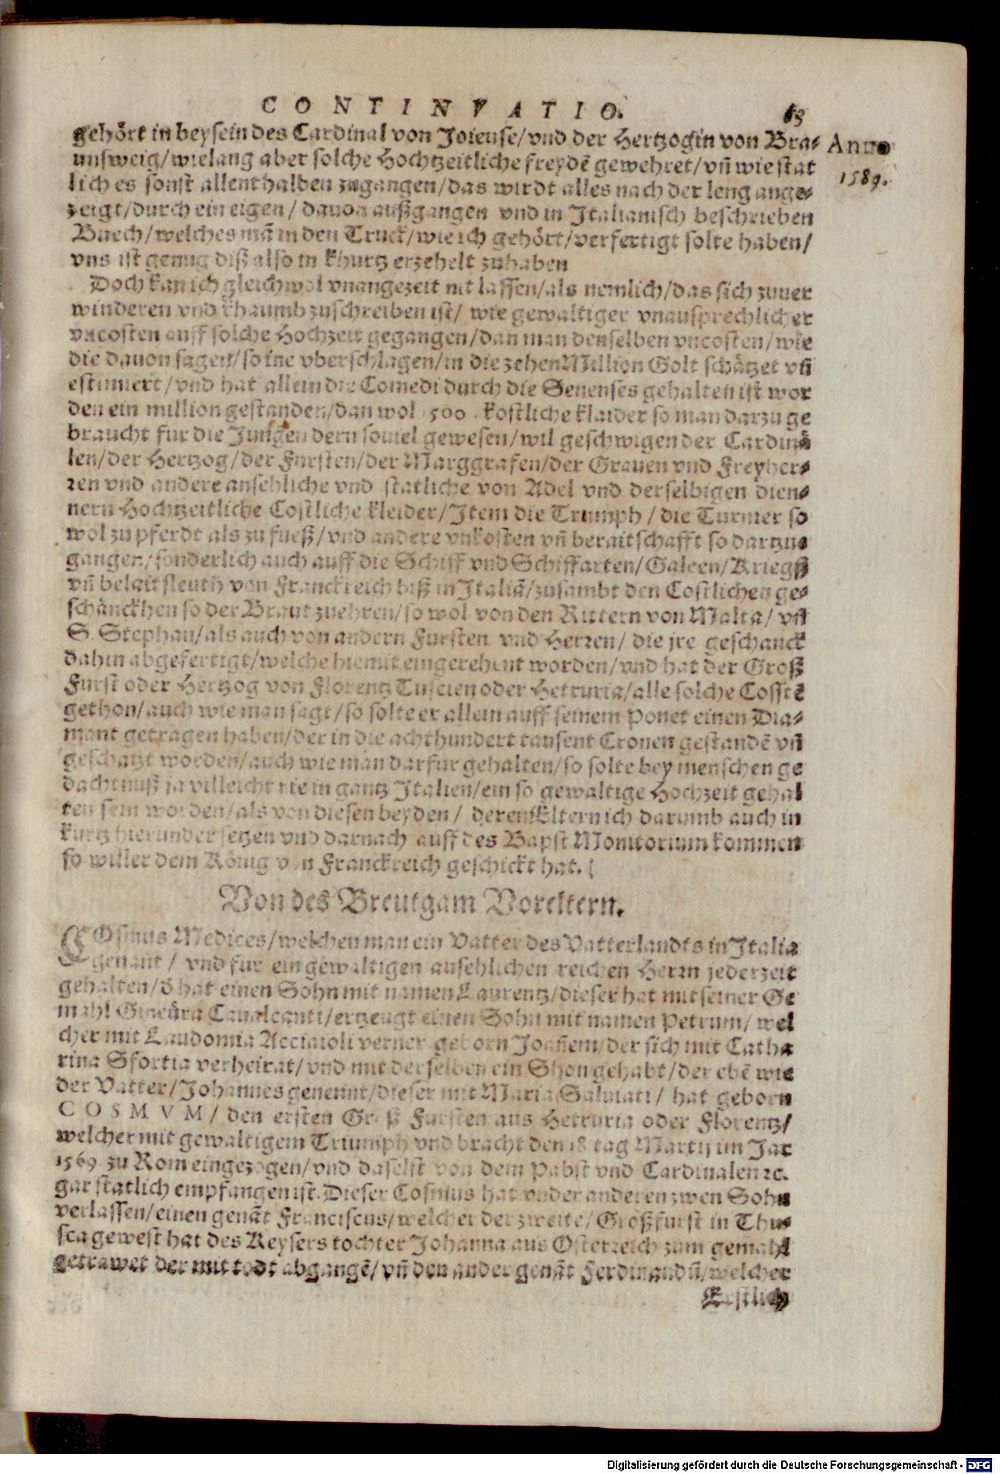 CONTINVATIO. 63
gehört in beysein des Cardinal von Joieuse/ vnd der Hertzogin von Bra- Anno
unsweig/ wielang aber solche Hochtzeitliche freydē gewehret/ vñ wie stat 1589.
lich es sonst allenthalben zugangen/ das wirdt alles nach der leng ange-
zeigt/ durch ein eigen/ dauon außgangen vnd in Italianisch beschrieben
Buech/ welches mā in den Truck/ wie ich gehört/ verfertigt solte haben/
vns ist genug diß also in khurtz erzehelt zuhaben
Doch kan ich gleichwol vnangezeit nit lassen/ als nemlich/ das sich zuuer
winderen vnd khaumb zuschreiben ist/ wie gewaltiger vnausprechlicher
vncosten auff solche Hochzeit gegangen/ dan man denselben vncosten/ wie
die dauon sagen/ so ine vberschlagen/ in die zehen Million Golt schätzet vñ
estimiert/ vnd hat allein die Comedi durch die Senenses gehalten ist wor
den ein million gestanden/ dan wol 1500. kostliche klaider so man darzu ge
braucht fur die Jungen dern souiel gewesen/ wil geschwigen der Cardinä
len/ der Hertzog/ der Fursten/ der Marggrafen/ der Grauen vnd Freyher-
ren vnd andere ansehliche vnd statliche von Adel vnd derselbigen dien-
nern Hochtzeitliche Costliche kleider/ Item die Trumph/ die Turnier so
wol zu pferdt als zu fueß/ vnd andere vnkosten vñ beraitschafft so dartzu-
gangen/ sonderlich auch auff die Schiff vnd Schiffarten/ Galeen/ Kriegß
vñ belaitsleuth von Franckreich biß in Italiā/ zusambt den Costlichen ge-
schänckhen so der Braut zuehren/ so wol von den Rittern von Malta/ vñ
S. Stephan/ als auch von andern Fursten vnd Herren/ die jre geschanck
dahin abgefertigt/ welche hiemit eingerehent worden/ vnd hat der Groß
Furst oder Hertzog von Florentz Tuscien oder Hetruria/ alle solche Cosstē
gethon/ auch wie man sagt/ so solte er allein auff seinem Ponet einen Dia-
mant getragen haben/ der in die achthundert tausent Cronen gestandē vñ
geschatzt worden/ auch wie man darfur gehalten/ so solte bey menschen ge
dachtnuß ja villeicht nie in gantz Italien/ ein so gewaltige Hochzeit gehal
ten sein worden/ als von diesen beyden/ deren Eltern ich darumb auch in
kurtz hierunder setzen vnd darnach auff des Bapst Monitorium kommen
so willer dem König von Franckreich geschickt hat.
Von des Breutgam Voreltern.
COsmus Medices/ welchen man ein Vatter des Vatterlandts in Italia
genant/ vnd fur ein gewaltigen ansehlichen reichen Herrn jederzeit
gehalten/ d̄ hat einen Sohn mit namen Laurentz/ dieser hat mit seiner Ge
mahl Gineüra Caualcanti/ ertzeugt einen Sohn mit namen Petrum/ wel
cher mit Laudomia Acciaioli verner geborn Joañem/ der sich mit Catha
rina Sfortia verheirat/ vnd mit derselben ein Shon gehabt/ der ebē wie
der Vatter/ Johannes genennt/ dieser mit Maria Saluiati/ hat geborn
COSMVM/ den ersten Groß Fursten aus Hetruria oder Florentz/
welcher mit gewaltigem Triumph vnd bracht den 18 tag Martij im Jar
1569 zu Rom eingezogen/ vnd daselst von dem Pabst vnd Cardinalen ꝛc.
gar statlich empfangen ist. Dieser Cosmus hat vnder anderen zwen Sohn
verlassen/ einen genāt Franciscus/ welcher der zweite/ Großfurst in Thu-
sca gewest hat des Keysers tochter Johanna aus Osterreich zum gemahl
getrawet der mit todt abgangē/ vñ den ander genāt Ferdinandū/ welcher
Erstlich
Digitalisierung gefördert durch die Deutsche Forschungsgemeinschaft - DFG